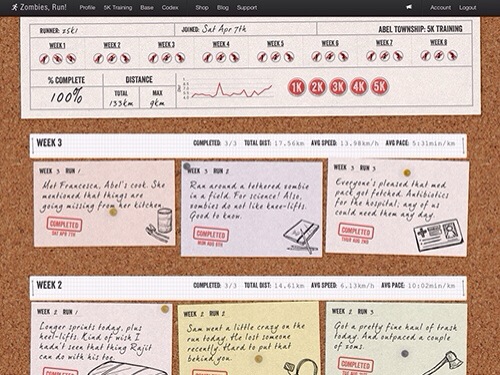 Zombies, Run! Profile 5K Training Base Codex Shop Blog Support Account Logout
RUNNER: zski JOINED: Sat Apr 7th ABEL TOWNSHIP: 5K TRAINING
WEEK 1 WEEK 2 WEEK 3 WEEK 4 WEEK 5 WEEK 6 WEEK 7 WEEK 8
% COMPLETE DISTANCE
100% TOTAL MAX
133km 9km
1K 2K 3K 4K 5K
WEEK 3 COMPLETED: 3/3 TOTAL DIST: 17.56km AVG SPEED: 13.98km/h AVG PACE: 5:31min/km
WEEK 3 RUN 1
Met Francesca, Abel's cook. She
mentioned that things are
going missing from her kitchen.
COMPLETED
SAT APR 7TH
WEEK 3 RUN 2
Ran around a tethered zombie
in a field. For science! Also,
zombies do not like knee-lifts.
Good to know.
COMPLETED
MON AUG 6TH
WEEK 3 RUN 3
Everyone's pleased that med
pack got fetched. Antibiotics
for the hospital; any of us
could need them any day.
COMPLETED
THUR AUG 2ND
WEEK 2 COMPLETED: 3/3 TOTAL DIST: 14.61km AVG SPEED: 6.13km/h AVG PACE: 10:02min/km
WEEK 2 RUN 1
Longer sprints today, plus
heel-lifts. Kind of wish I
hadn't seen that thing Rajit
can do with his toe.
COMPLETED
WEEK 2 RUN 2
Sam went a little crazy on the
run today. He lost someone
recently. Hard to put that
behind you.
COMPLETED
WEEK 2 RUN 3
Got a pretty fine haul of trash
today. And outpaced a couple
of zoms.
COMPLETED